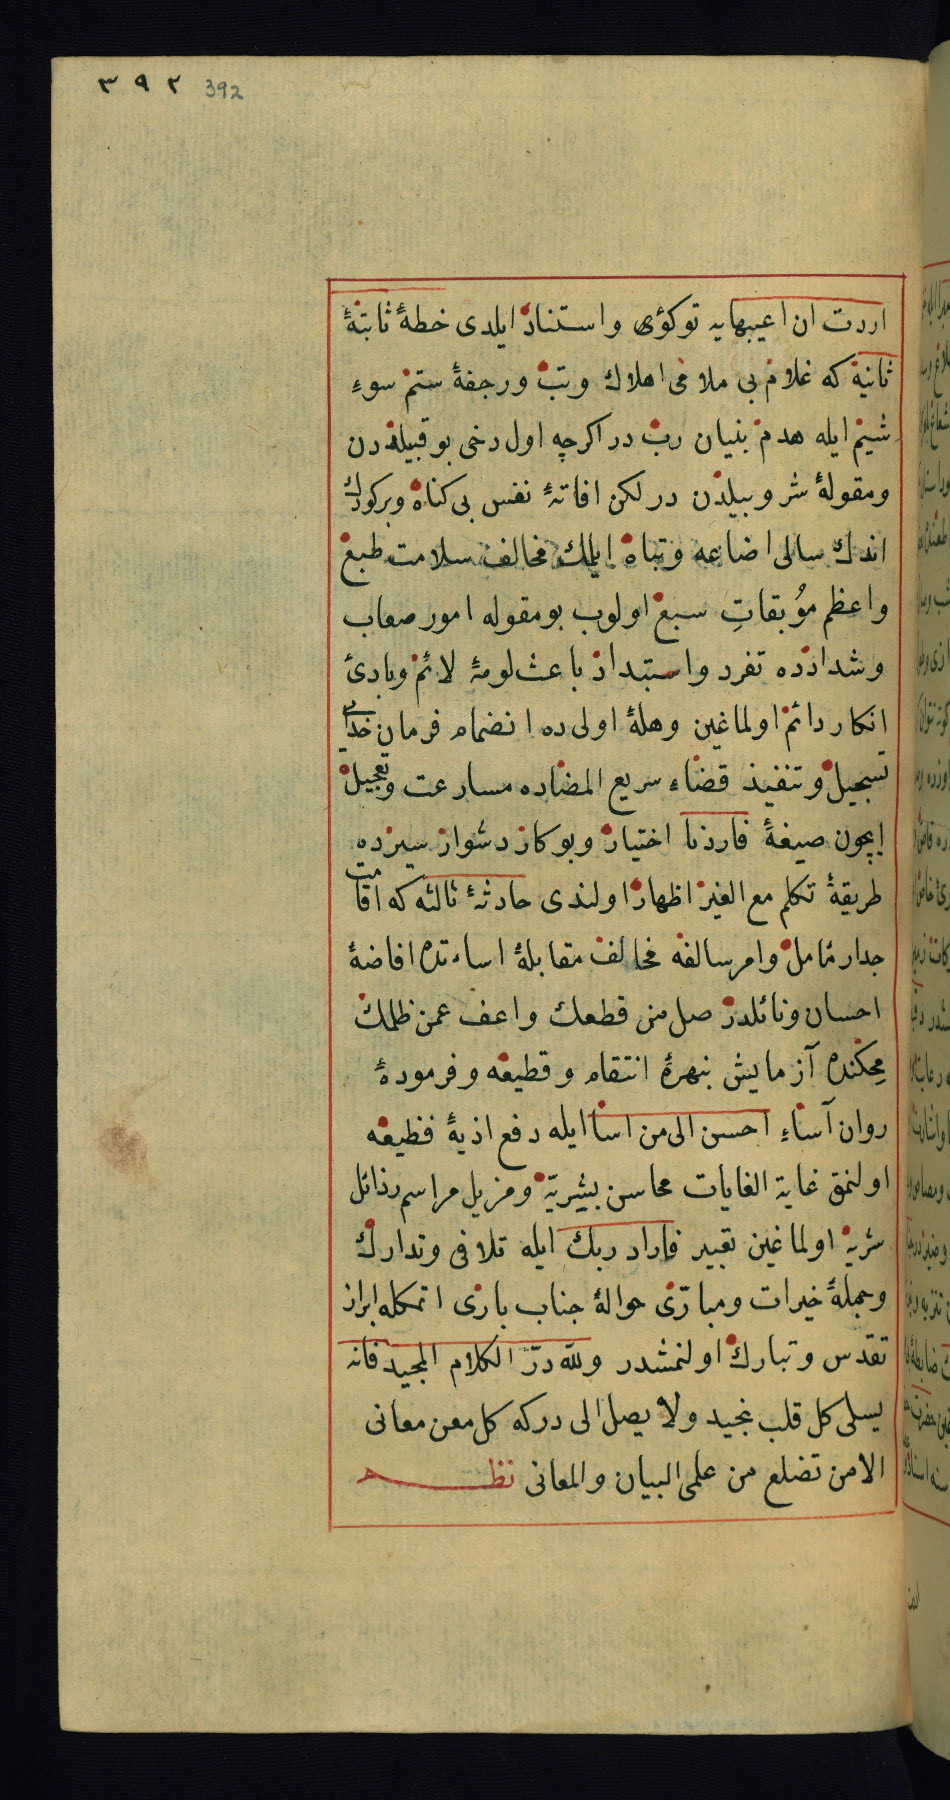 ٣٩٢ 392
اردت ان اعيبهايه توكؤى واستناد ايلدى خطهٔ ثابتهٔ
ثانيه كه غلام بى ملامى اهلاك وتب ورجفهٔ ستم سوء
شيم ايله هدم بنيان رب در اكرچه اول دخى بو قبيله دن
ومقولهٔ شر وبيلدن در لكن افاتهٔ نفس بى كناه وبركودك
اندك سالى اضاعه وتباه ايلمك مخالف سلامت طبع
واعظم مؤبقاتِ سبع اولوب بومقوله امور صعاب
وشدادده تفرد واستبداد باعث لومهٔ لائم وبادئ
انكار دائم اولماغين وهلهٔ اولى ده انضمام فرمان خداى
تسجيل وتنفيذ قضاء سريع المضاده مسارعت وتعجيل
ايچون صيغهٔ فاردنا اختيار وبوكاز دشوار سيزده
طريقهٔ تكلم مع الغير اظهار اولندى حادثهٔ ثالثه كه اقامت
جدار مامل وامر سالفه مخالف مقابلهٔ اساءتده افاضهٔ
احسان ونائلدر صل من قطعك واعف عمن ظلمك
محكنده آزمايش بنهرهٔ انتقام وقطيعه وفرمودهٔ
روان آساءِ احسن الى من اسا ايله دفع اذيهٔ فظيعه
اولنمق غاية الغايات محاسن بشريه ومزيل مراسم رذائل
شريه اولماغين تعبير فاراد ربك ايله تلافى وتدارك
وجملهٔ خيرات ومبارّى حوالهٔ جناب بارى اتمكله ابراز
تقدس وتبارك اولنمشدر ولله درّ الكلام المجيد فانه
يسلى كل قلب نجيد ولا يصل الى دركه كل معن معانى
الا من تضلع من علمى البيان والمعانى نظم